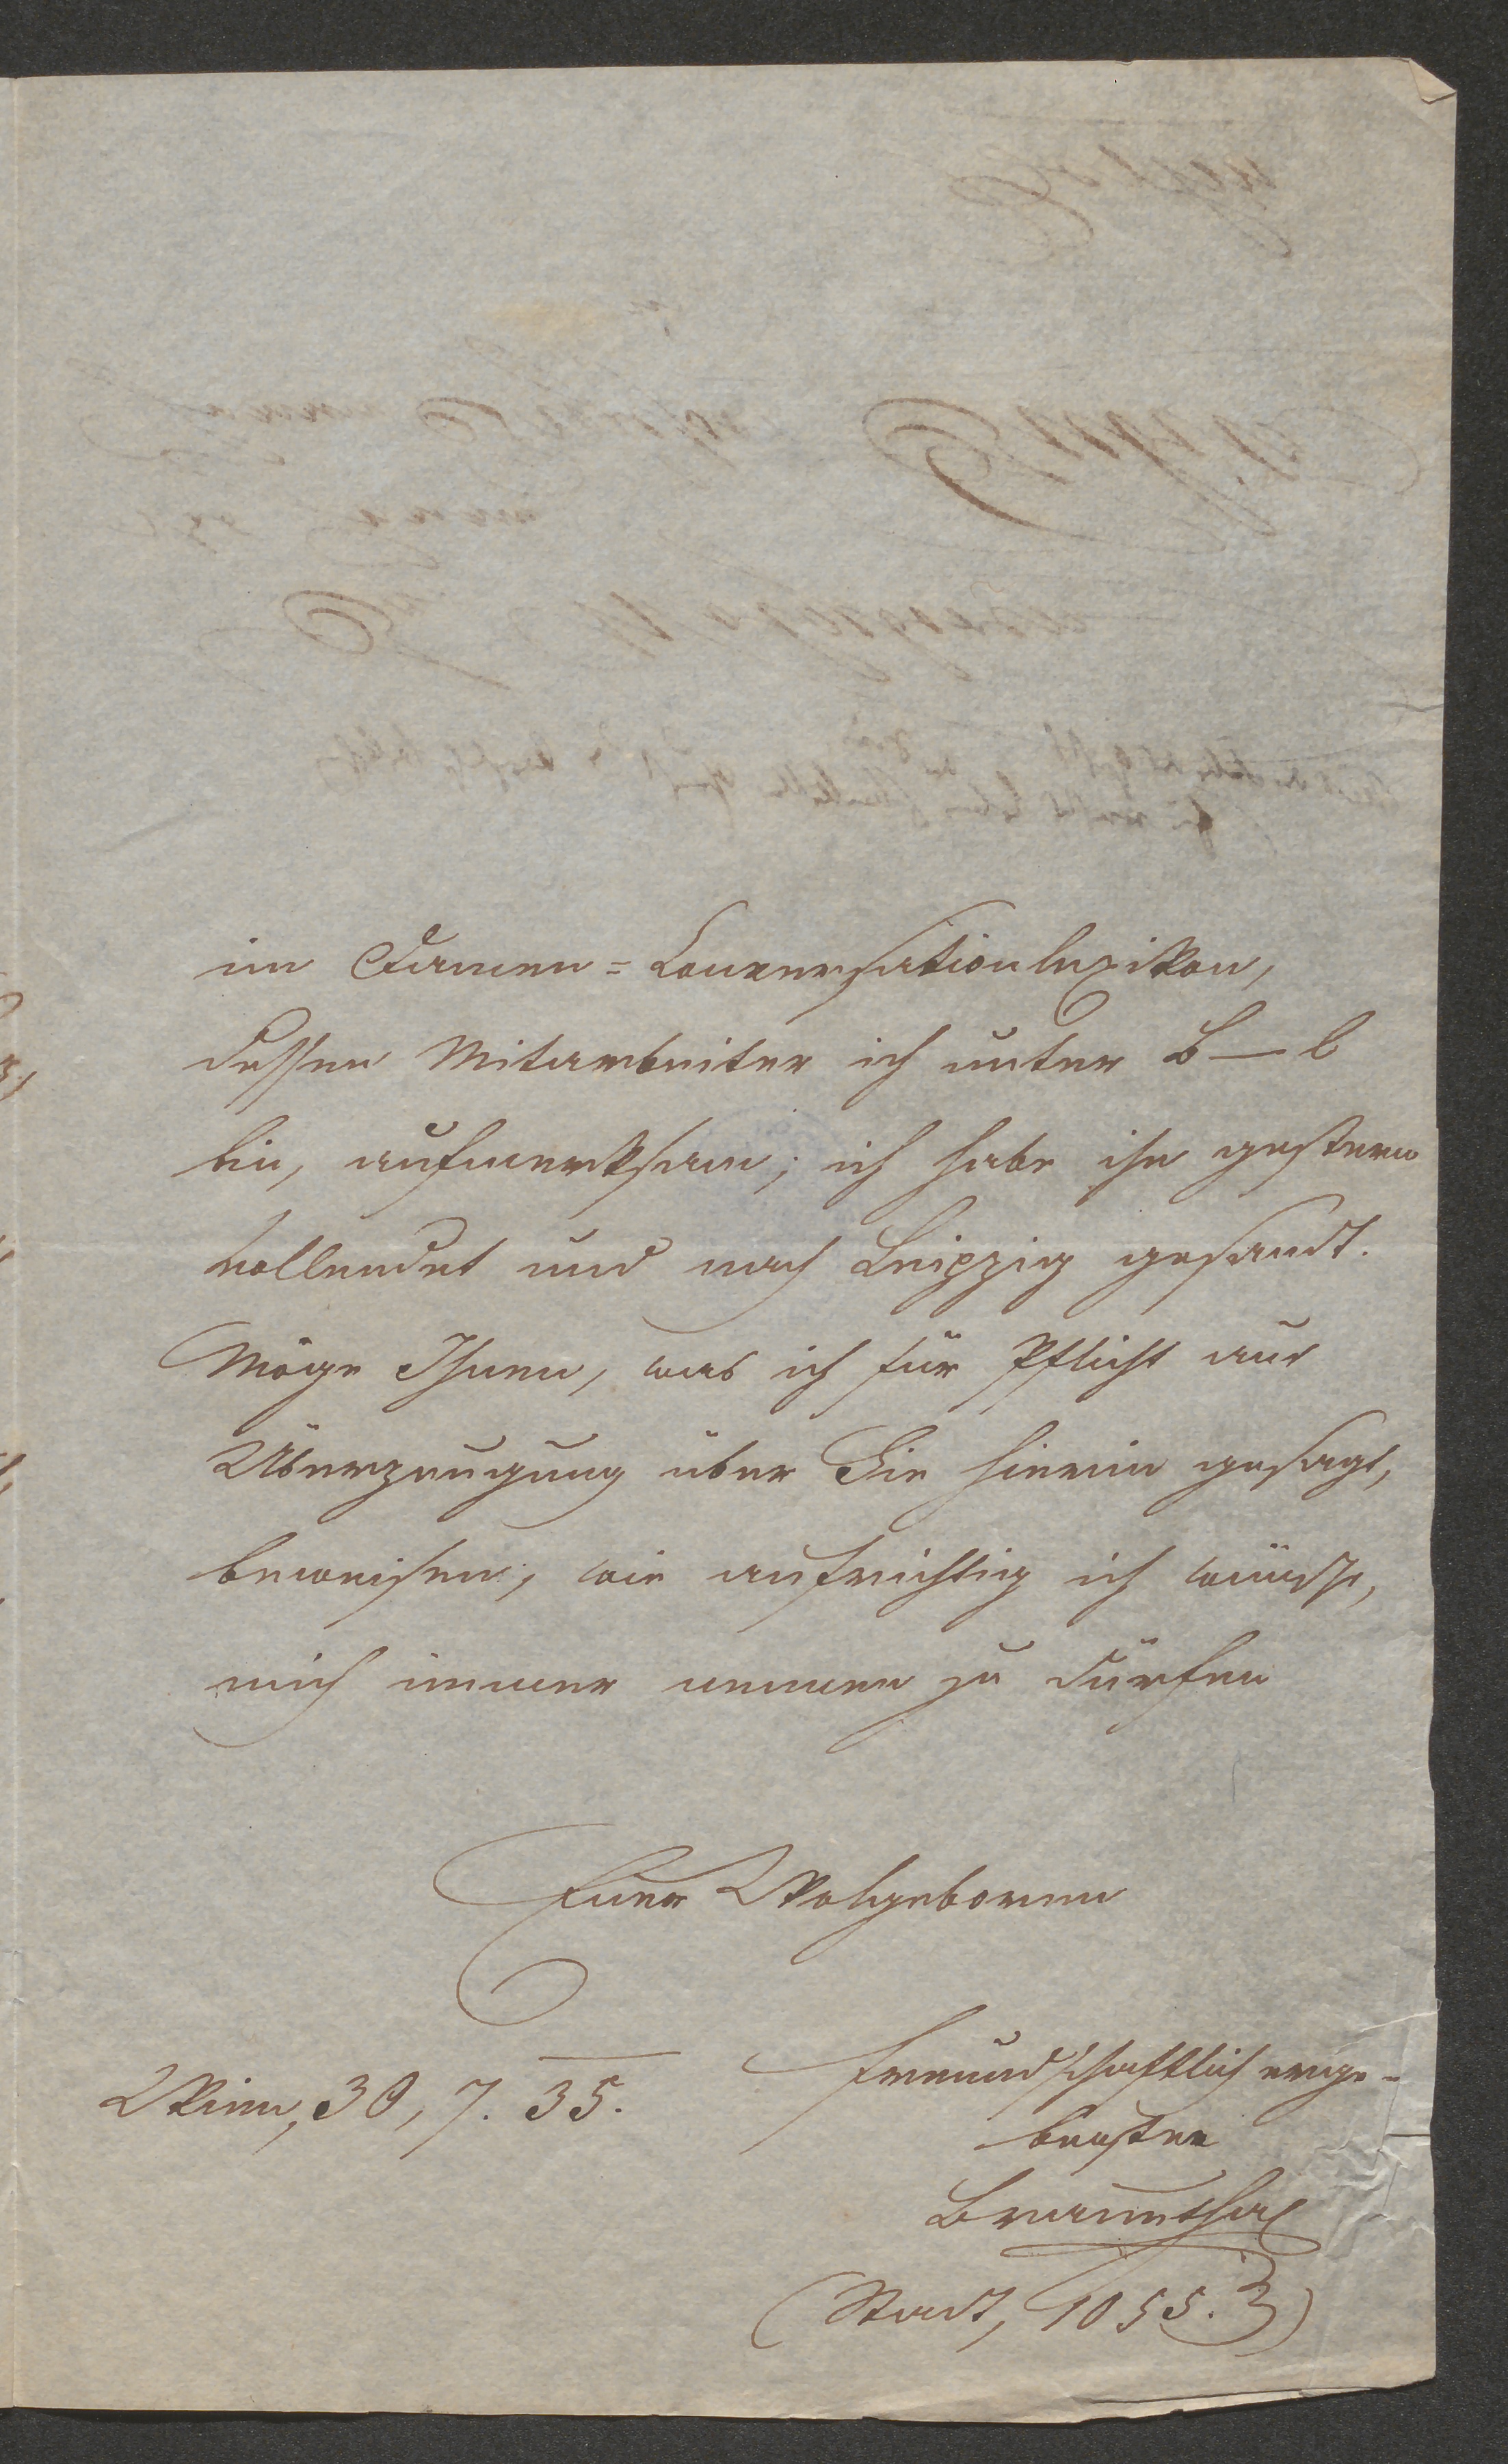 im Damen=Conversationlexikon,
dessen Mitarbeiter ich unter B—l
bin, aufmerksam; ich habe ihn gestern
vollendet und nach Leipzig gesandt.
Möge Ihnen, was ich für Pflicht aus
Überzeugung über Sie hierin gesagt,
beweisen, wie aufrichtig ich wünsche,
mich immer nennen zu dürfen
Euer Wolgeboren
freundschaftlich erge-
Wien, 30, 7. 35.
benster
Braunthal
(Stadt, 1055. 3)